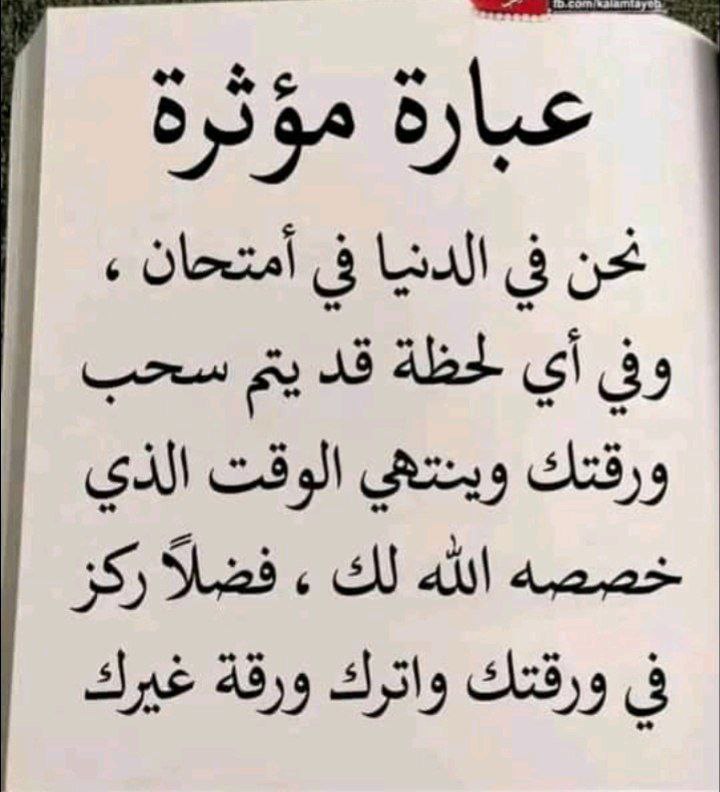 fb.com/kalamtayeb
عبارة مؤثرة
نحن في الدنيا في أمتحان ،
وفي أي لحظة قد يتم سحب
ورقتك وينتهي الوقت الذي
خصصه الله لك ، فضلاً ركز
في ورقتك واترك ورقة غيرك